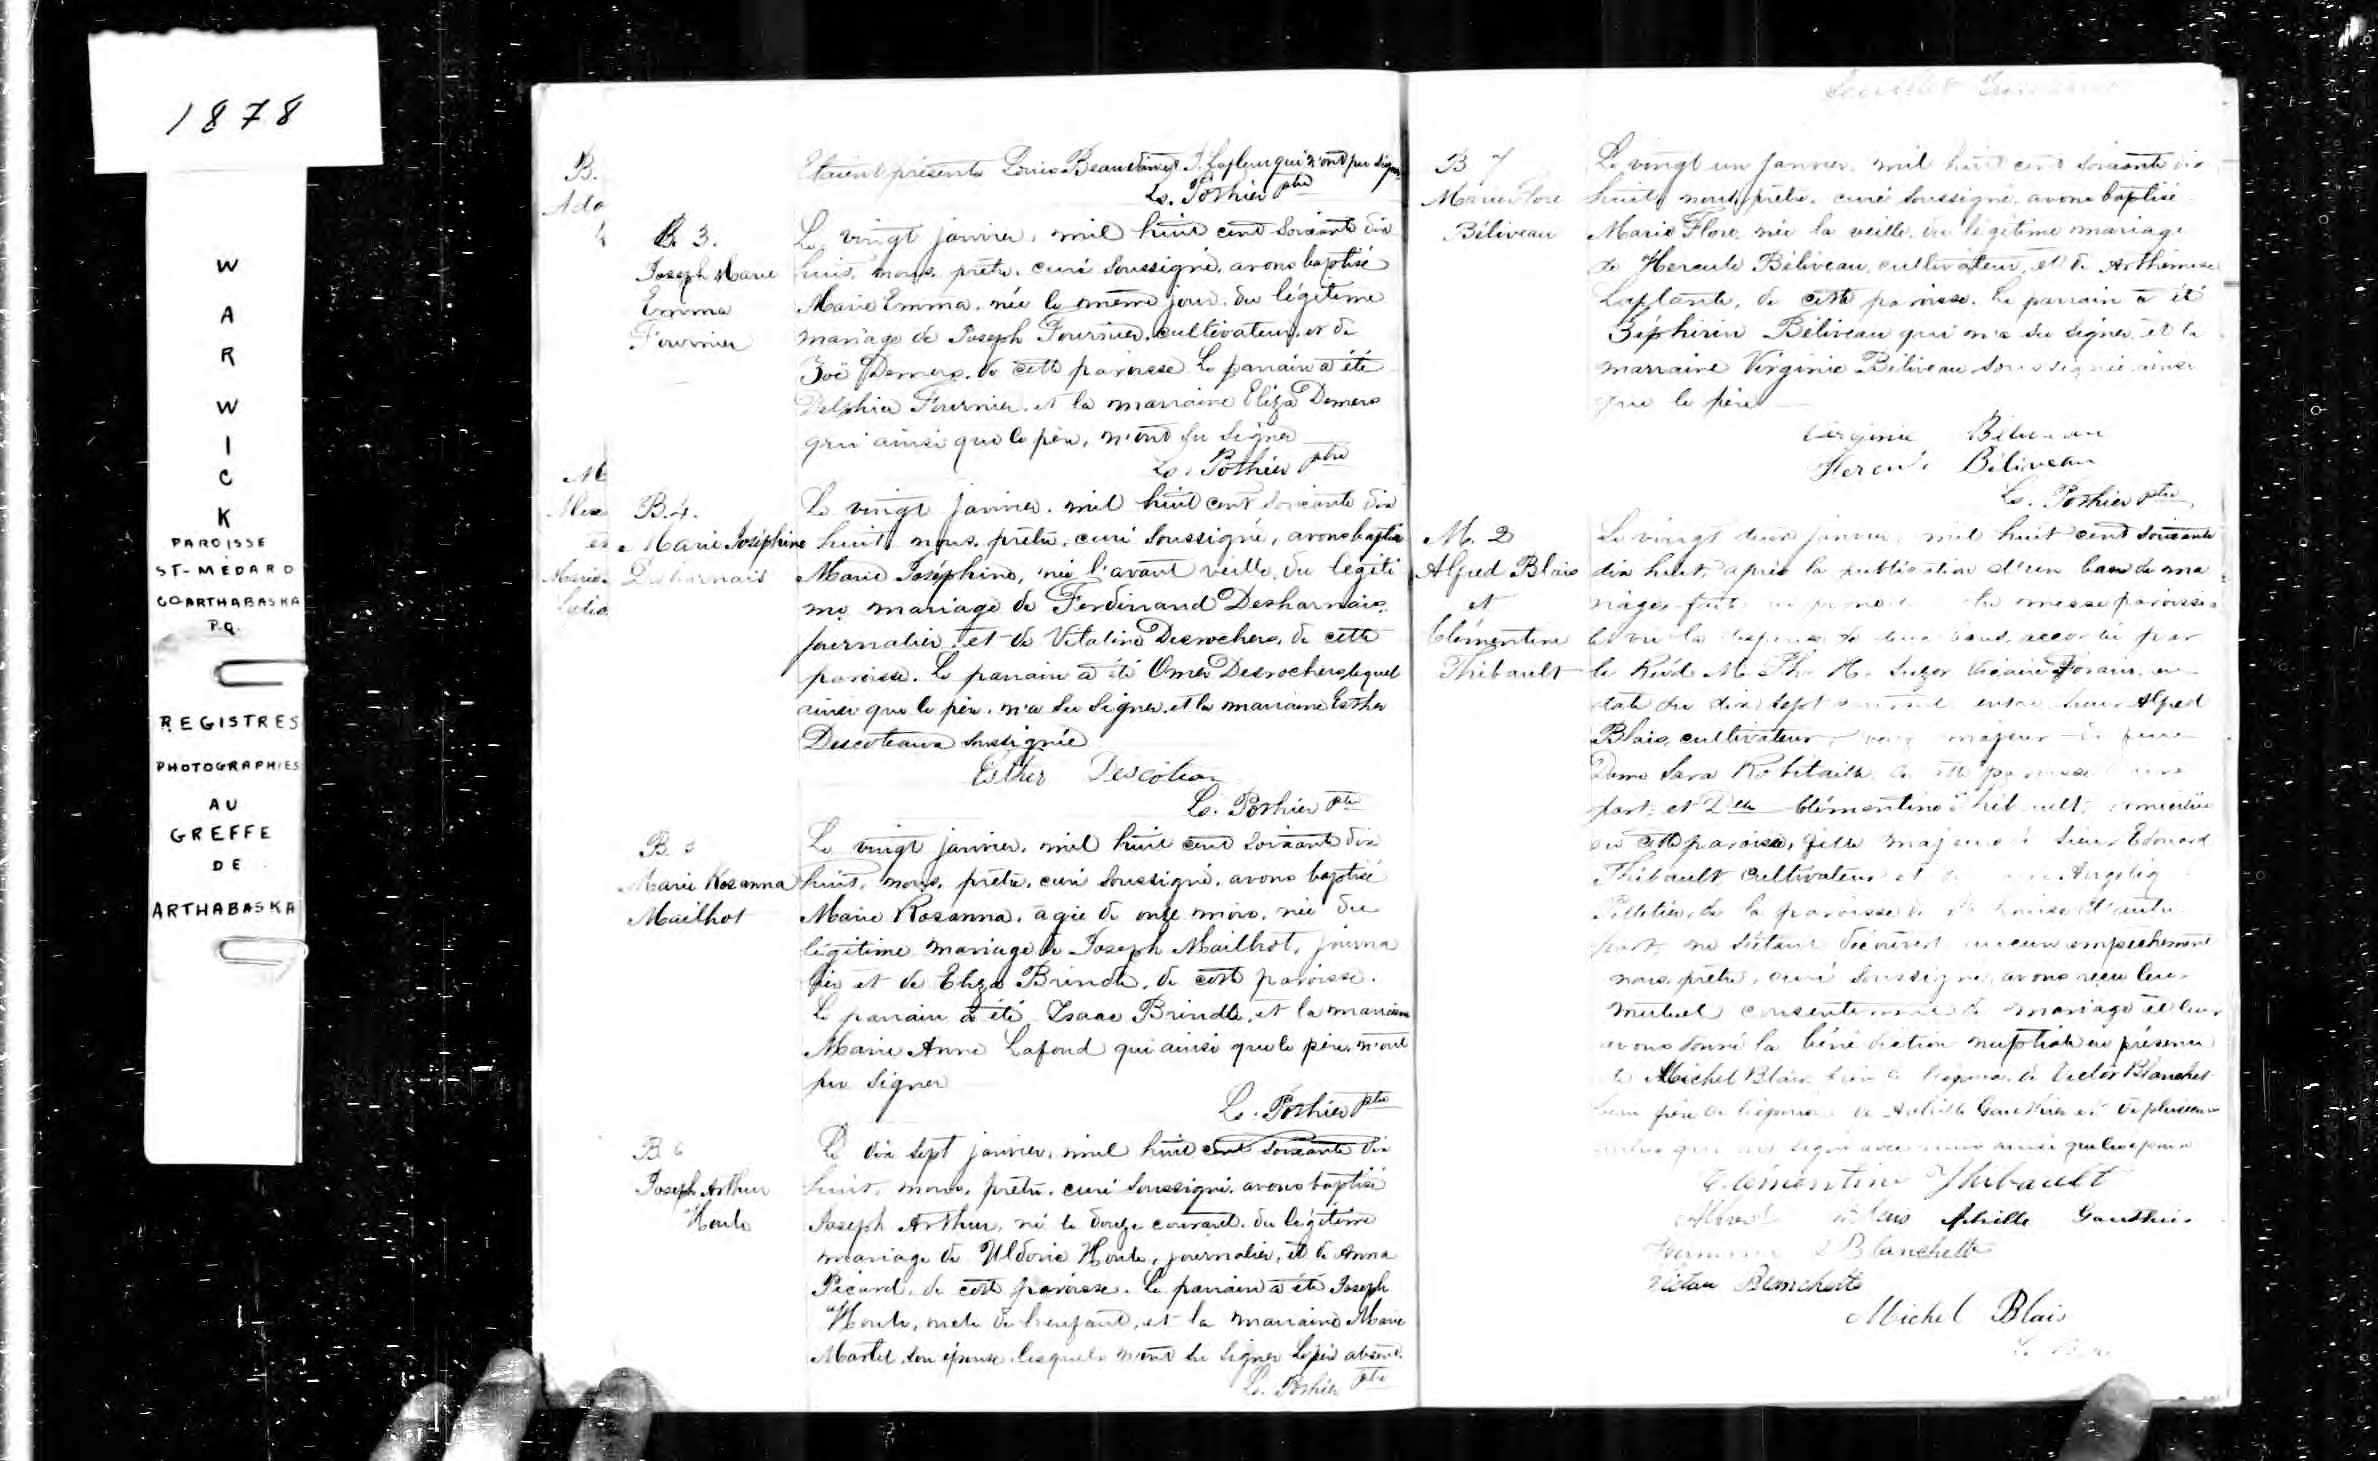 1878
W
A
R
W
I
C
K
PAROISSE
ST-MÉDARD
CO ARTHABASKA
P.Q.
REGISTRES
PHOTOGRAPHIES
AU
GREFFE
DE
ARTHABASKA
B.
Ado
Etaient présents Louis Beaudoin et P. Lafleur qui n'ont pu signer
Ls. Pothier ptre
B. 3.
Joseph Marie
Emma
Fournier
Le vingt janvier, mil huit cent soixante dix
huit, nous, prêtre, curé soussigné, avons baptisé
Marie Emma, née le même jour, du légitime
mariage de Joseph Fournier, cultivateur, et de
Zoé Demers, de cette paroisse. Le parrain a été
Delphin Fournier, et la marraine Eliza Demers
qui ainsi que le père, n'ont su signer
Ls. Pothier ptre
B. 4.
Marie Joséphine
Desharnais
Le vingt janvier, mil huit cent soixante dix
huit, nous, prêtre, curé soussigné, avons baptisé
Marie Joséphine, née l'avant veille, du légiti
me mariage de Ferdinand Desharnais,
journalier, et de Vitaline Desrochers, de cette
paroisse. Le parrain a été Omer Desrochers, lequel
ainsi que le père, n'a su signer, et la marraine Esther
Descoteaux soussignée
Esther
Ls. Pothier ptre
B. 5
Marie Rosanna
Mailhot
Le vingt janvier, mil huit cent soixante dix
huit, nous, prêtre, curé soussigné, avons baptisé
Marie Rosanna, agée de onze mois, née du
légitime mariage de Joseph Mailhot, journa
lier et de Eliza Brindle, de cette paroisse.
Le parrain a été Isaac Brindle, et la marraine
Marie Anne Lafond qui ainsi que le père, n'ont
pu signer
Ls. Pothier ptre
B. 6
Joseph Arthur
Houle
Le dix sept janvier, mil huit cent soixante dix
huit, nous, prêtre, curé soussigné, avons baptisé
Joseph Arthur, né le douze courant, du légitime
mariage de Uldoric Houle, journalier, et de Anna
Picard, de cette paroisse. Le parrain a été Joseph
Houle, oncle de l'enfant, et la marraine Marie
Martel, son épouse, lesquels n'ont su signer. Le père absent.
Ls. Pothier ptre
B 7
Marie Flore
Béliveau
Le vingt un janvier, mil huit cent soixante dix
huit, nous, prêtre, curé soussigné, avons baptisé
Marie Flore, née la veille, du légitime mariage
de Hercule Béliveau, cultivateur, et de Arthémise
Laplante, de cette paroisse. Le parrain a été
Zéphirin Béliveau qui n'a su signer, et la
marraine Virginie Béliveau soussignée ainsi
que le père
Virginie Béliveau
Hercule Béliveau
Ls. Pothier ptre
M. 2
Alfred Blais
et
Clémentine
Thibault
Le vingt deux janvier, mil huit cent soixante
dix huit, après la publication d'un banc de ma
riage faite au prône de la messe paroissia
le vu la dispense de deux bancs accordée par
le Révd M. Ph. H. Suzor Vicaire Forain, en
date du dix sept courant entre sieur Alfred
Blais, cultivateur, majeur de feue
Dame Sara Robitaille de cette paroisse d'une
part; et Delle Clémentine Thibault,
de cette paroisse, fille majeure de sieur Edouard
Thibault cultivateur et de
Pelletier, de la paroisse de d'autre
part, ne s'étant découvert aucun empêchement
nous, prêtre, curé soussigné, avons reçu leur
mutuel consentement de mariage et leur
avons donné la bénédiction nuptiale en présence
de Michel Blais, frère de l'époux, de Victor Blanchet
beau frère de l'épouse, de Achille Gauthier et de plusieurs
autres qui ont signé avec nous ainsi que les époux
Clémentine Thibault
Alfred Blais Achille Gauthier
Blanchette
Victor Blanchette
Michel Blais